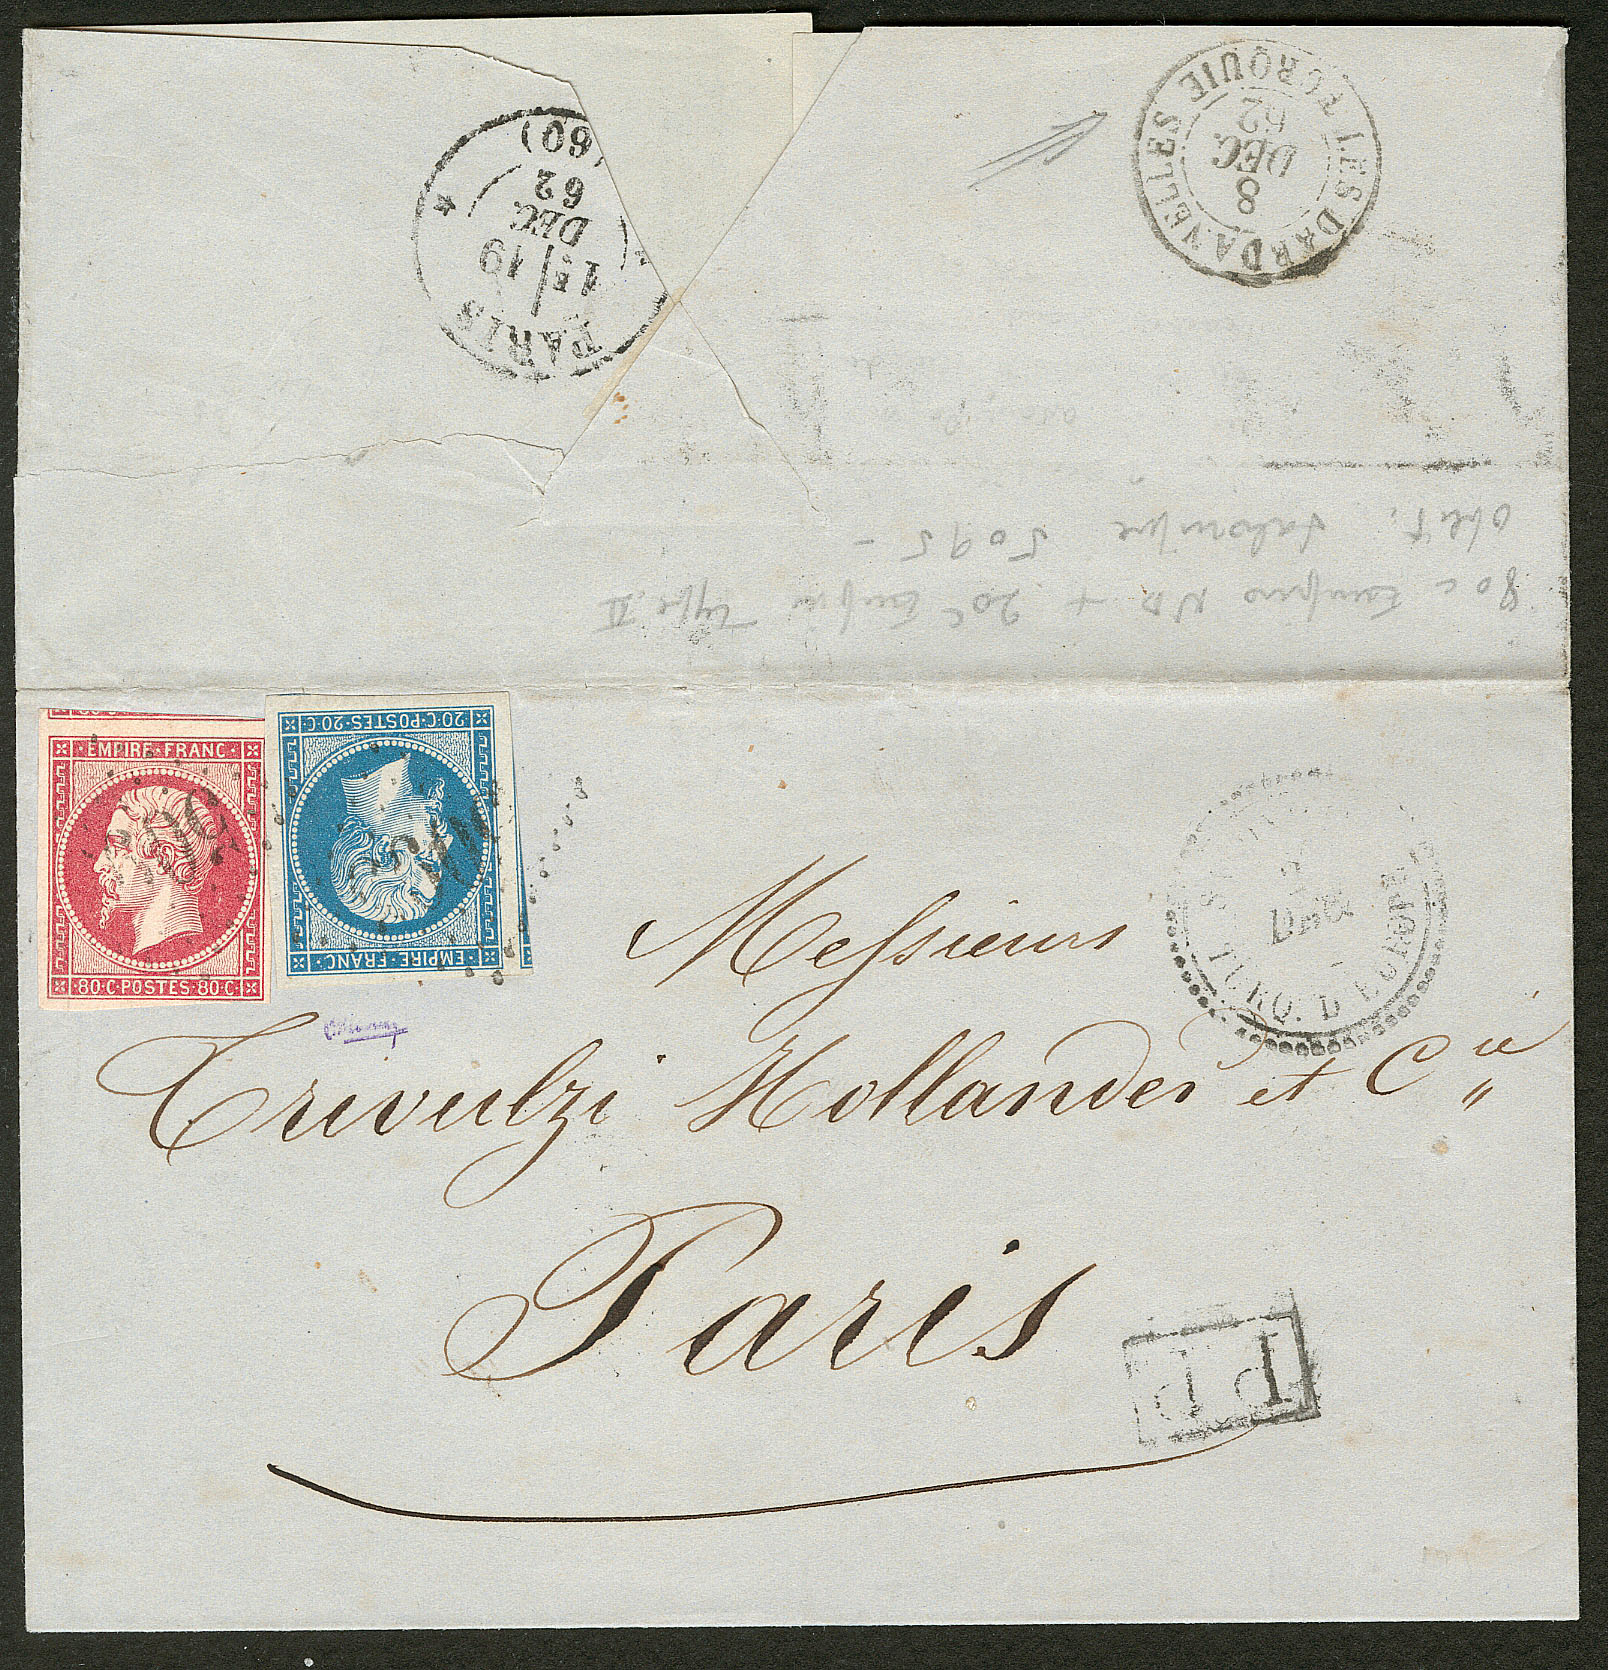 PARIS
1E/19
DEC.
62
(60)
LES DARDANELLES TURQUIE
8
DEC.
62
80c Empire ND + 20c Empire type II
oblit. Salonique 5095 -
EMPIRE FRANC
80·C·POSTES·80·C
20·C·POSTES·20·C
EMPIRE·FRANC
TURQ. D'EUROPE
DEC
Messieurs
Trivulzi Hollander et Cie
Paris
PD